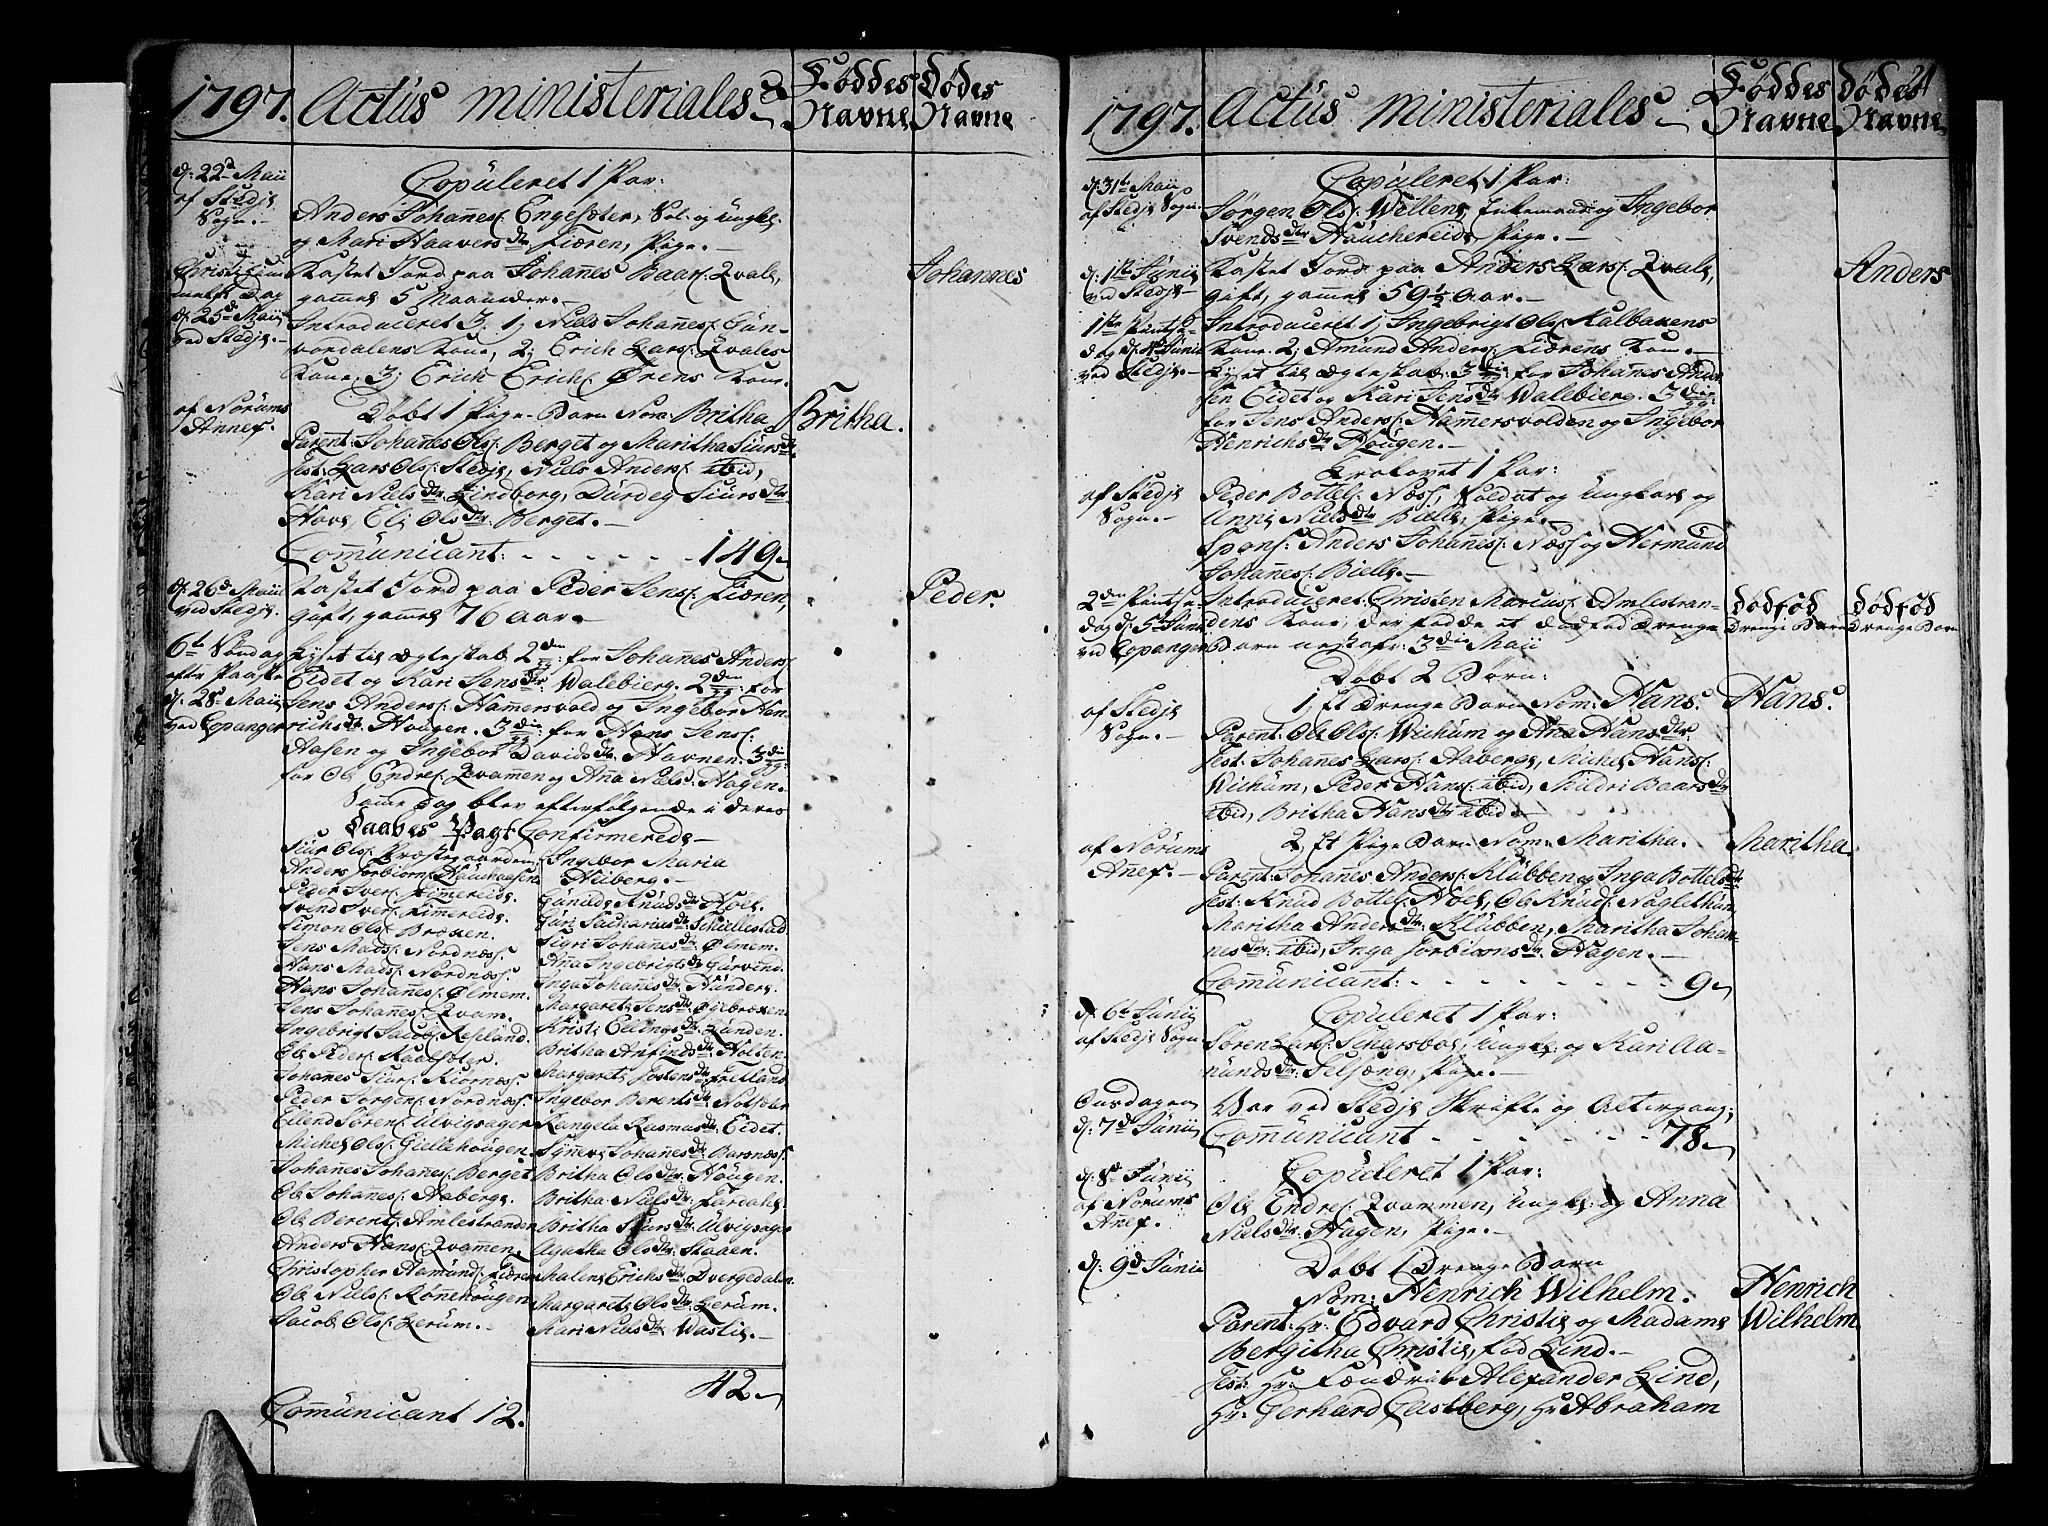 1797. Actus ministeriales. Föddes Navne Dödes Navne
d: 22d Maii af Stedje Sogn.-
Copuleret 1 Par:
Anders Johañes: Engesæter, Sol. og Ungkl
og Mari Haavers dtr Fiæren, Pige.-
Christi Himmelf. Dag
Kastet Jord paa Johañes Baars: Qvale, Johannes
gammel 5 Maaneder.-
d: 25d Maii ved Stedje.-
Introduceret 3. 1, Niels Johañes: Gun-
vordalens Kone, 2; Erich Lars: Qvales
Kone. 3; Erich Erichs: Ørens Kone.
af Norums Annex.
Döbt 1 Pige-Barn Nom: Britha, Britha.
Parent: Johañes Ols: Berget og Maritha Siurs dtr
Test: Lars Ols: Stedje, Niels Anders: ibid,
Kari Niels dtr Lindborg, Durdeg Siurs dtr
Hove, Eli Ols dtr Berget.-
Com̃unicant: - - - - - - 149.
d: 26d Maii ved Stedje.
Kastet Jord paa Peder Jens: Fiæren, Peder.
gift, gammel 76 aar.-
6te Söndag efter Paaske d: 28de Maii ved Copanger
Lyset til Ægtestab 2den g: for Johañes Anders:
Eidet og Kari Jens dtr: Walebierg. 2den g: for
Jens Anders: Hamersvold og Ingebor Hen-
richs dtr Haugen. 3die g: for Hans Jens:
Aasen og Ingebor Davids dtr Havnen. 3die g:
for Ole Endres: Qvam̃en og Aña Niels d: Hagen.
Sam̃e Dag blev efterfölgende i deres
Daabes Pagt Confirmerede
Siur Ols: Præstegaarden.
Anders Torbiörns: Hauchaasen.
Peder Ivers: Kimereid.
Svend Ivers: Kimereid.
Simon Ols: Broxen.
Jens Mads: Nordnæs.
Hans Mads: Nordnæs.
Hans Johañes: Ølmem.
Jens Johañes: Qvam.
Ingebrigt Jacobs: Refland.
Ole Peders: Kaalsæter.
Johañes Siurs: Kiörnæs.
Peder Jörgens: Nordnæs.
Ellend Sörens: Ulvigsager
Michel Ols: Gullehougen.
Johañes Johañes: Berget
Ole Johañes: Aaberge.
Ole Berents: Amlestranden
Anders Hans: Qvam̃en,
Christopher Aamunds: Fiæren
Ole Niels: Röñehougen
Jacob Ols: Lerum.-
Ingebor Maria
Neiberg.-
Gunild Knuds dtr Hole.
Guri Sacharias dtr Skiellestad
Sigri Johañes dtr Ølmem.
Aña Ingebrigts dtr Gurvind.
Inga Johañes dtr Hundere.
Margaret Jens dtr Öyebroxen.
Kristi Ellings dtr Lunden.
Britha Anfinds dtr Holten.
Margarete Jostens dtr Fretland
Ingebor Berents dtr Notsæter
Rangela Rasmus dtr Eidet.
Synneve Johañes dtr Barsnæs.
Britha Ols dtr Hougen.
Britha Niels dtr Ferdahl.
Britha Siurs dtr Ulvigsager
Agatha Ols dtr Staaen.
Malene Erichs dtr Dvergedalen
Margarete Ols dtr Lerum.
Mari Niels dtr Wastie.-
42.
Com̃unicant 12.
1797. Actus ministeriales. Föddes Navne Dödes Navne 24
d: 31te Maii af Stedje Sogn.
Copuleret 1 Par:
Jörgen Ols: Wellene, Enkemand og Ingebor
Svends dtr Hauchereid, Pige.-
d: 1ste Junii ved Stedje
Kastet Jord paa Anders Lars: Qvale, Anders
gift, gammel 59½ Aar.-
1ste Pintsedag d: 4de Junii ved Stedje.-
Introduceret 1, Ingebrigt Ols: Kalbakens
Kone. 2, Amund Anders: Fiærens Kone.-
Lyset til Ægtestab: 3die g: for Johañes Ander-
sen Eidet og Kari Jens dtr Walebierg. 3die g:
for Jens Anders: Ham̃ersvolden og Ingebor
Henrichs dtr Hougen.-
af Stedje Sogn.-
Trolovet 1 Par:
Peder Bottels: Næs, Soldat og Ungkarl og
Anni Niels dtr Bielle, Pige.-
Spons: Anders Johañes: Næss og Hermund
Johañes: Bielle.-
2den Pintsedag d: 5te Junii ved Copanger
Introduceret Christen Marcus: Amlestran- Dödföd Dödföd
dens Kone, der födde et dödfød Drenge Drenge Barn Drenge Barn
Barn nestafv: 3die Maii
af Stedje Sogn.-
Döbt 2 Börn:
1, Et Drenge Barn Nom: Hans. Hans.
Parent: Ole Ols: Wichum og Aña Hans dtr
Test: Johañes Lars: Aaberge, Michel Hans:
Wichum, Peder Hans: ibid, Sildri Baars dtr
ibid, Britha Hans dtr ibid.-
af Norums Añex.-
2, Et Pige Barn Nom: Maritha. Maritha.
Parent: Johañes Anders: Klubben og Inga Bottels dtr
Test: Knud Bottels: Hole, Ole Knuds: Naglethun,
Maritha Anders dtr Klubben, Maritha Johan-
nes dtr ibid, Inga Torbiorns dtr Hagen.-
Com̃unicant: - - - - - - - - 9.
d: 6te Junii af Stedje Sogn
Copuleret 1 Par:
Sören Lars: Skarsboe, Ungkl. og Kari Aa-
munds dtr Selseng, Pige.-
Onsdagen d: 7de Junii
Var ved Stedje Skrifte og Altergang;
Com̃unicant - - - - - - - 78.
d: 8de Junii af Norums Añex.
Copuleret 1 Par:
Ole Endres: Qvammen, Ungkl: og Anna
Niels dtr Hagen, Pige.-
d: 9de Junii
Döbt 1 Drenge Barn
Nom: Henrich Wilhelm. Henrich
Parent: Hr: Edvard Christie og Madame Wilhelm
Bergitha Christie, föd Lind.-
Test: Hr: Fændrik Alexander Lind,
Hr: Gerhard Geelberg, Hr Abraham